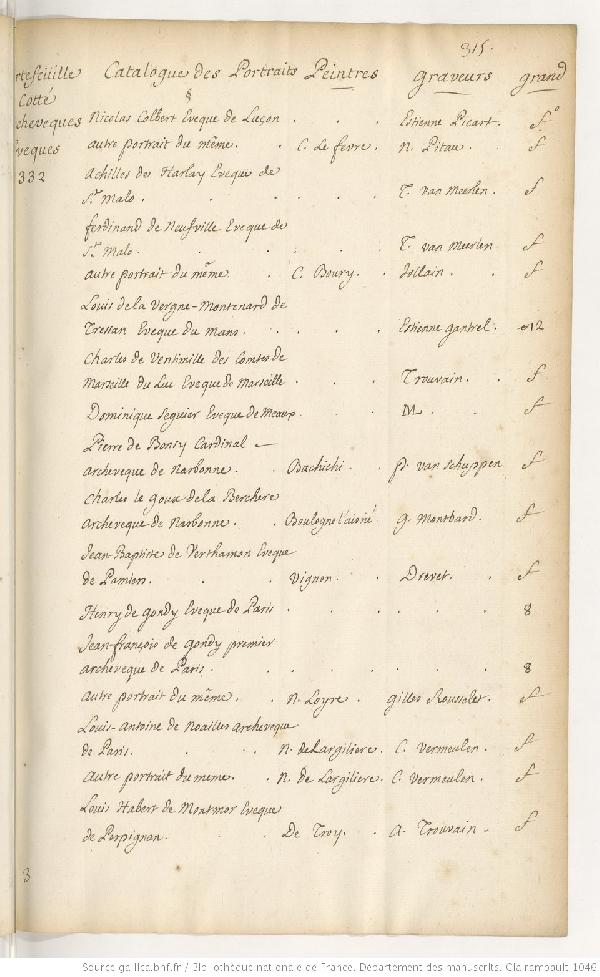 315.
rtefeüille Catalogue des Portraits Peintres graveurs grand
Cotté
cheveques
Eveques
332
§
Nicolas Colbert Eveque de Luçon . . . Estienne Picart. fo
autre portrait du même. . C. Le fevre. N. Pitau. f
achilles de Harlay Eveque de
St. Malo. . . . . T. van Meerlen. f
ferdinand de Neufville Eveque de
St. Malo. . . . . T. van Meerlen f
autre portrait du même. . C. Boury. dollain. . f
Louis de la Vergne-Montenard de
Tressan Eveque du Mans. . . . . Estienne gantrel. 12
Charles de Ventimille des Comtes de
Marseille du Luc Eveque de Marseille . . . Trouvain. . f
Dominique Seguier Eveque de Meaux. . . M . . f
Pierre de Bonsy Cardinal
archeveque de Narbonne. . Bachichi. . P. van Schuppen f
Charles le goux de la Berchere
archeveque de Narbonne. . Boulogne l'aisné g. Montbard. . f
Jean-Baptiste de Verthamon Eveque
de Pamiers. . . Vignon. . Drevet. . f
Henry de gondy Eveque de Paris . . . . . 8
Jean-françois de gondy premier
archeveque de Paris. . . . . . . 8
autre portrait du même. . N. Loyre. gilles Rousselet. f
Louis-Antoine de Noailles archeveque
de Paris. . . N. de Largiliere. C. Vermeulen. f
autre portrait du meme. . N. de Largiliere. C. Vermeulen. f
Louis Habert de Montmor Eveque
de Perpignan. . . De Troy. . A. Trouvain. f
3
Source gallica.bnf.fr / Bibliothèque nationale de France. Département des manuscrits. Clairambault 1046